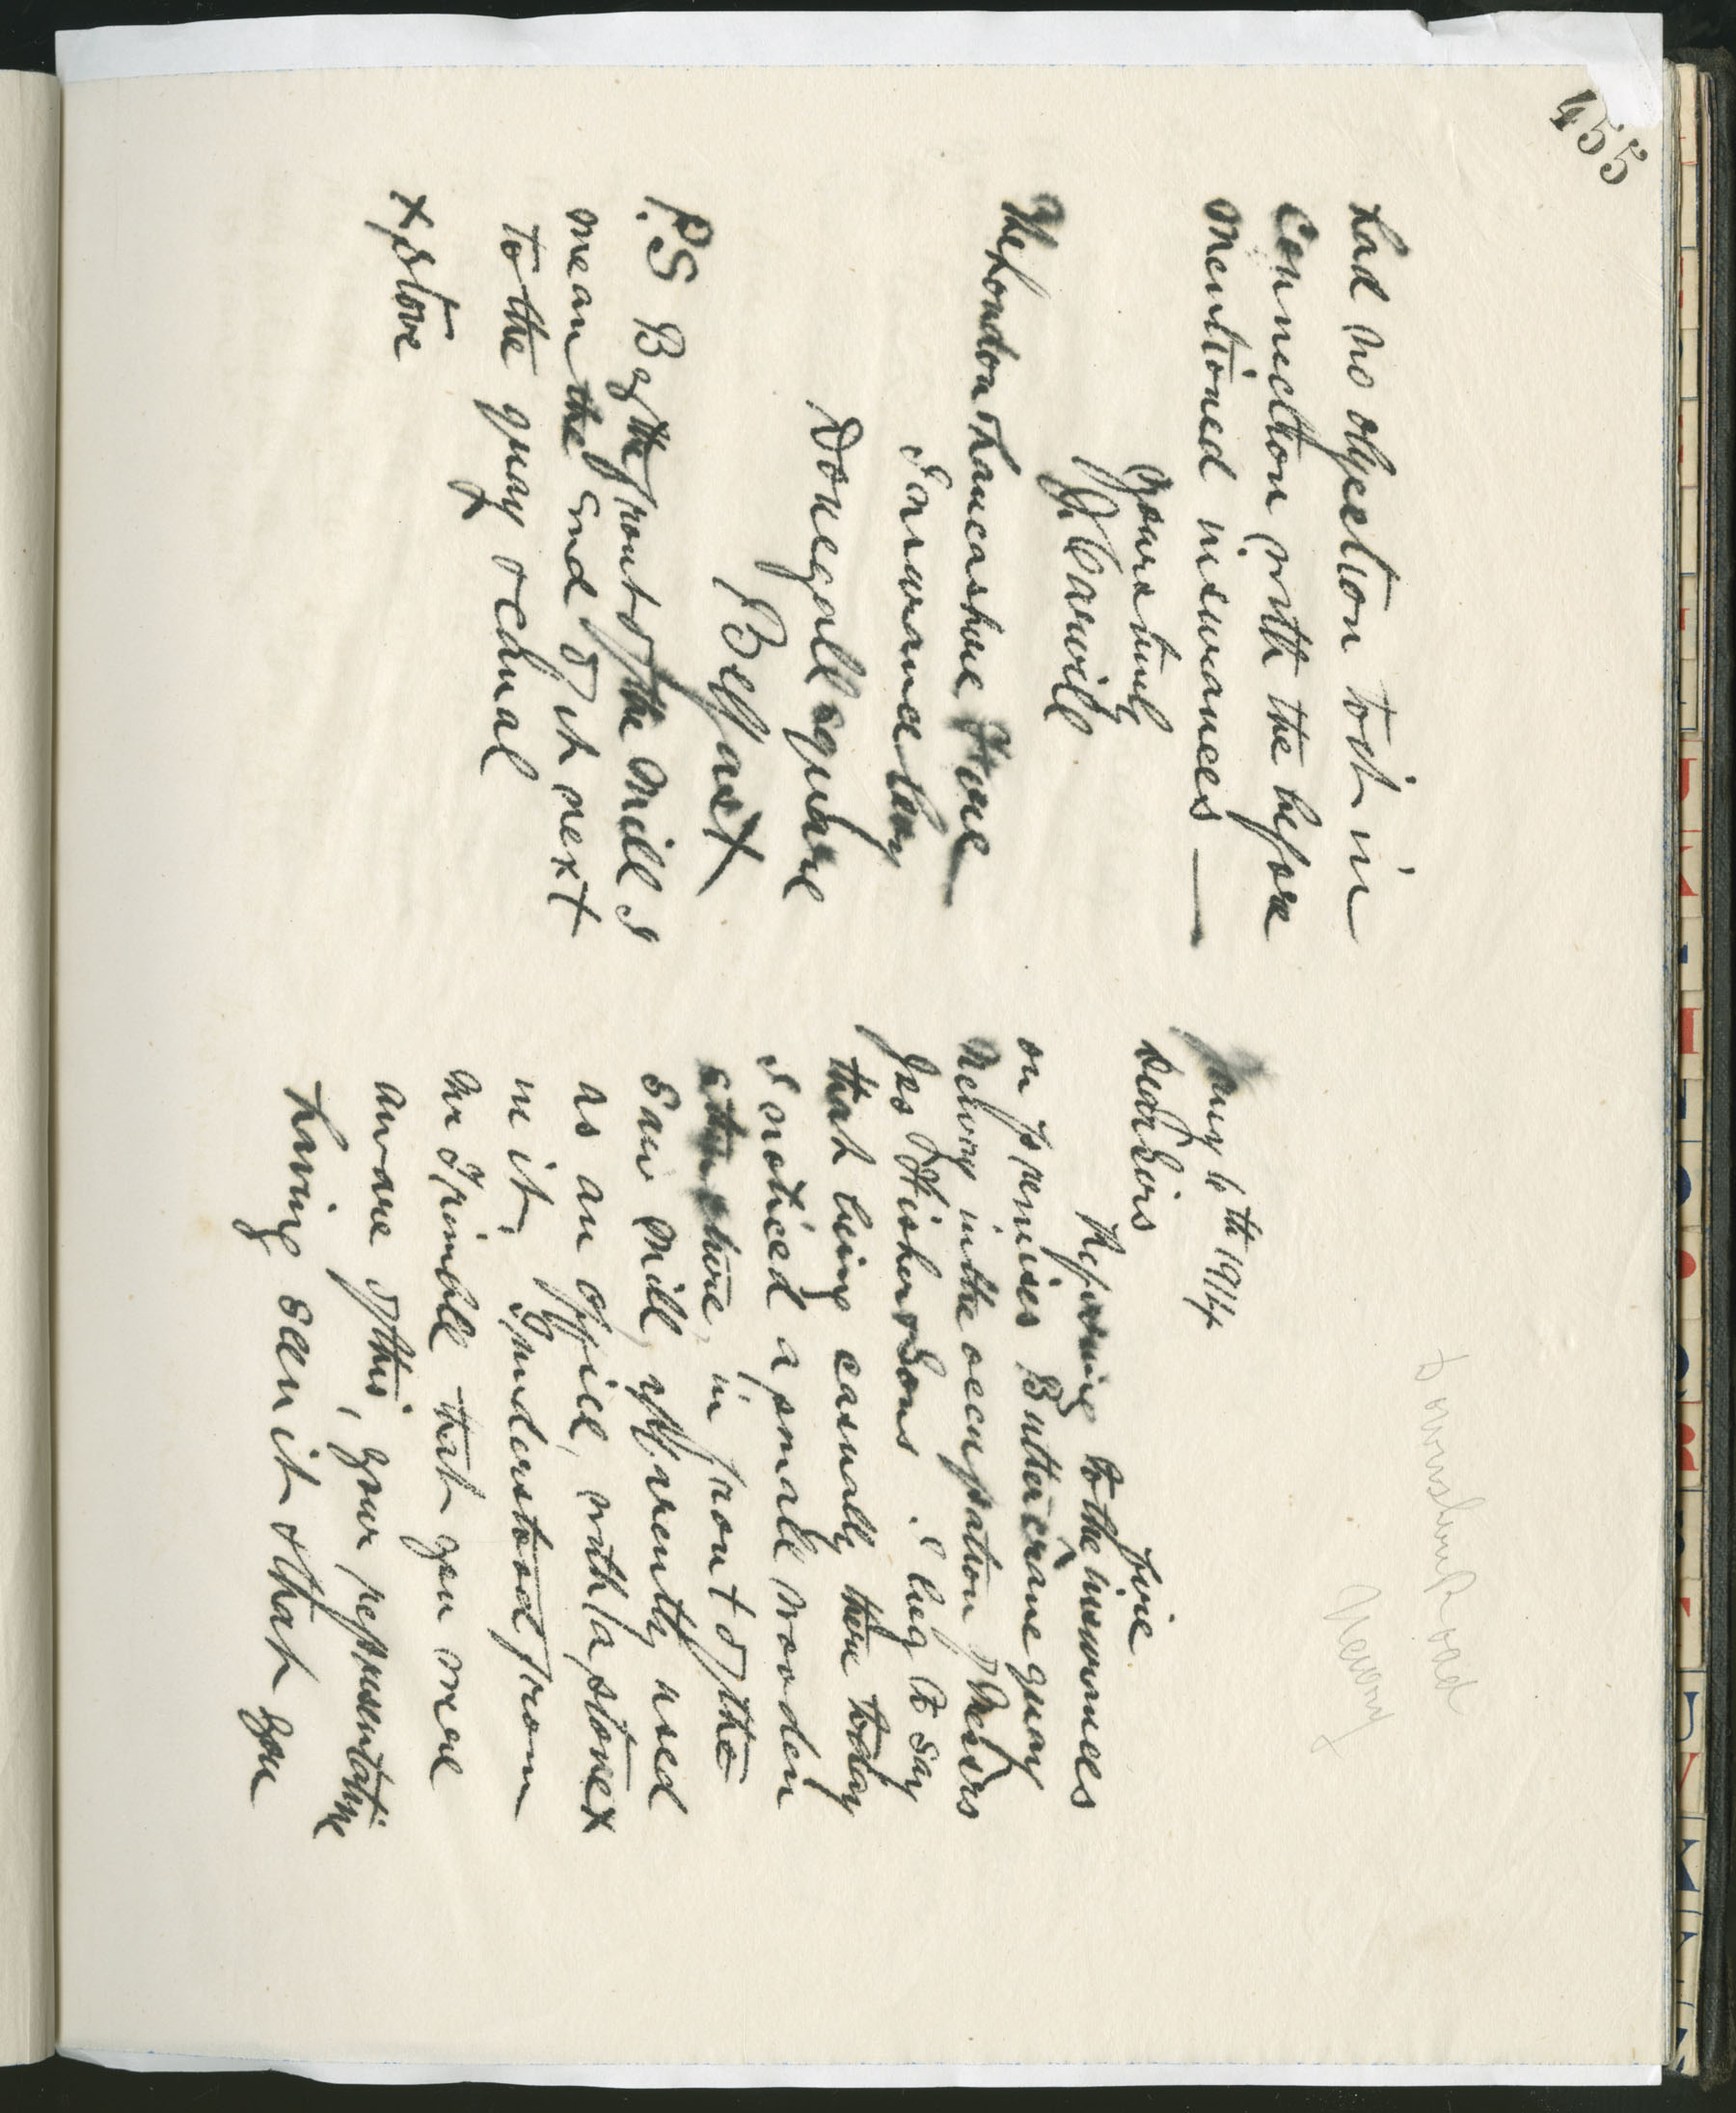 455
May 6th 1914
Dear Sirs
Fire
Referring to the insurances
on premises Buttercrane quay
Newry in the occupation of Messrs
Jas Fisher & Sons. I beg to say
that being casually there today
I noticed a small wooden
structure, in front of the
saw mill, apparently used
as an office, with a stove x
in it, I understood from
Mr Trimble that you were
aware of this, your representative
having seen it & that you
had no objection to it in
Connection with the before
mentioned insurances —
yours truly
J Carvill
The London & Lancashire Fire
Insurance Coy
Donegall square
Belfast
P.S By the front of the Mill I
mean the End of it next
to the quay & canal
x stove
Newry